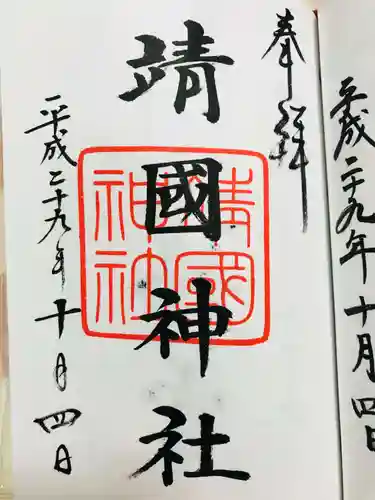 平成二十九年十月四日
奉拝
靖國神社
靖國神社
平成二十九年十月四日